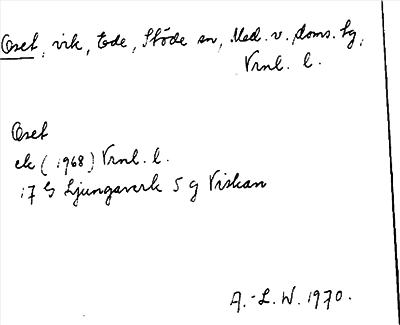 Oset, vik, Ede, Stöde sn, Med. v. doms. tg,
Vrnl. l.
Oset
ek (1968) Vrnl. l.
17 G Ljungaverk 5 g Viskan
A.-L. W. 1970.